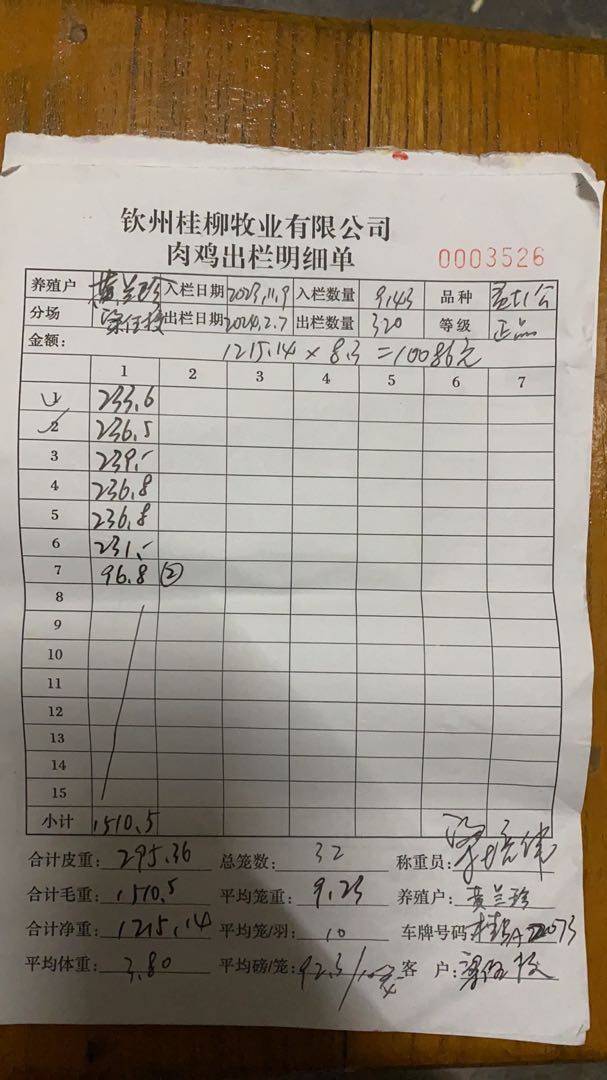 钦州桂柳牧业有限公司
肉鸡出栏明细单
0003526
养殖户 黄兰珍 入栏日期 2023.11.9 入栏数量 9143 品种
分场 出栏日期 2024.2.7 出栏数量 320 等级 正品
金额: 1215.14 × 8.3 = 10086元
1 2 3 4 5 6 7
1 233.6
2 236.5
3 239.-
4 236.8
5 236.8
6 231.-
7 96.8 ②
8
9
10
11
12
13
14
15
小计 1510.5
合计皮重: 295.36 总笼数: 32 称重员:
合计毛重: 1510.5 平均笼重: 9.23 养殖户: 黄兰珍
合计净重: 1215.14 平均笼/羽: 10 车牌号码
平均体重: 3.80 平均磅/笼: 92.3/ 客户: